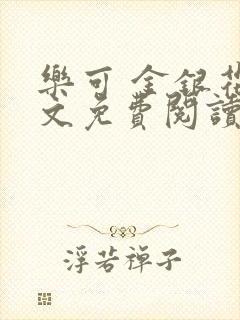 樂可 金銀花
文免費閱讀
浮若禪子